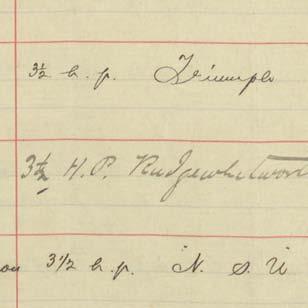 3½ h. p. Triumph
3½ H. P. Rudgewhitwort
3 1/2 h. p. N. S. U